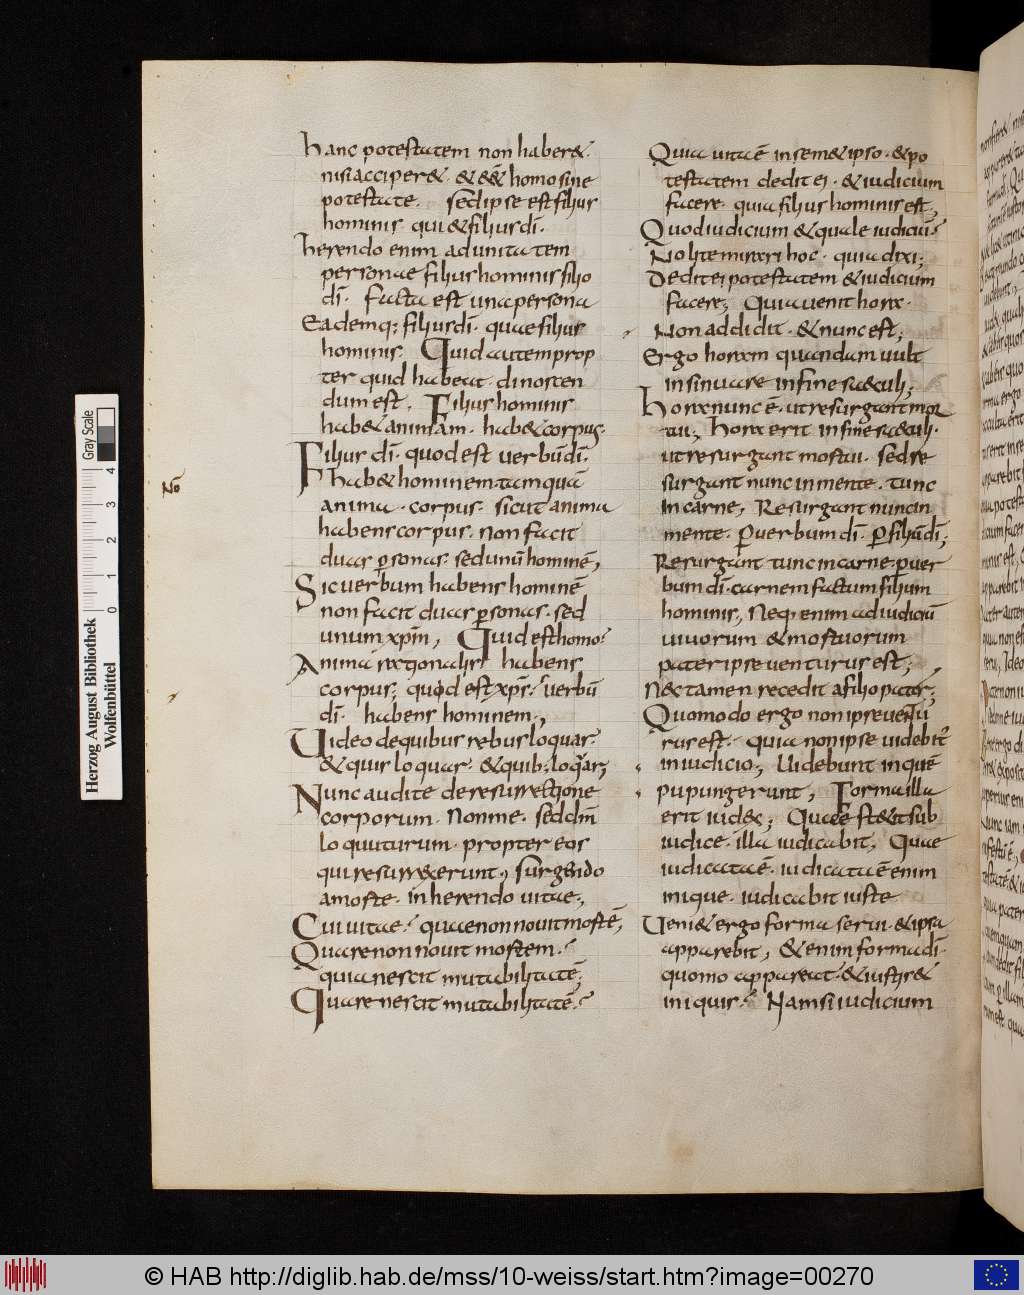 hanc potestatem non haber&·
nisi acciper&· & e&̄ homo sine
potestate· sed ipse est filius
hominis qui & filius dī·
herendo enim ad unitatem
personae filius hominis filio
dī· facta est una persona
Eademq; filius dī· quae filius
hominis· Quid autem prop
ter quid habeat· dinoscen
dum est· Filius hominis
hab& animam· hab& corpus·
Filius dī· quod est uerbū dī·
hab& hominem· tamquā
anima· corpus· sicut anima
habens corpus· non facit
duas psonas· sed unū hominē;
Sic uerbum habens hominē
non facit duas psonas· sed
unum xpm̄; Quid est homo?
Anima rationalis habens
corpus; quid est xps̄? uerbū
dī· habens hominem;
Uideo de quibus rebus loquar·
& quis loquar· & quib; loquar;
Nunc audite de resurrectione
corporum· Non me· sed dn̄m
loquuturum· propter eos
qui resurrexerunt; surgendo
a morte· inherendo uitae;
Cui uitae? quae non nouit mortē;
Quare non nouit mortem?
quia nescit mutabilitatē;
Quare nescit mutabilitatē?
Nō
Quia uitā ē in sem&ipso· & po
testatem dedit ei· & iudicium
facere· quia filius hominis est;
Quod iudicium & quale iudiciū?
Nolite mirari hoc· quia dixi;
Dedit ei potestatem & iudicium
facere; Quia uenit hora·
Non addidit· & nunc est;
Ergo horam quandam uult
insinuare in fine saeculi;
Hora nunc ē· ut resurgant mor
tui; Hora erit in fine saeculi·
ut resurgant mortui· sed re
surgant nunc in mente· tunc
in carne; Resurgant nunc in
mente· p uerbum dī· p filiū dī;
Resurgant tunc in carne· p uer
bum dī· carnem factum filium
hominis; Neq; enim ad iudiciū
uiuorum & mortuorum
pater ipse uenturus est;
Nec tamen recedit a filio pater;
Quomodo ergo non ipse uentu
rus est? quia non ipse uidebit̄
in iudicio; Uidebunt in quē
pupungerunt; Forma illa
erit iudex; Quae st&it sub
iudice· illa iudicabit; Quae
iudicata ē· iudicata ē enim
inique· iudicabit iuste
Ueni& ergo forma serui· & ipsa
apparebit; & enim forma dī·
quomo appareat· & iustis &
iniquis? Nam si iudicium
Gray Scale
0 1 2 3 4
Herzog August Bibliothek
Wolfenbüttel
© HAB http://diglib.hab.de/mss/10-weiss/start.htm?image=00270